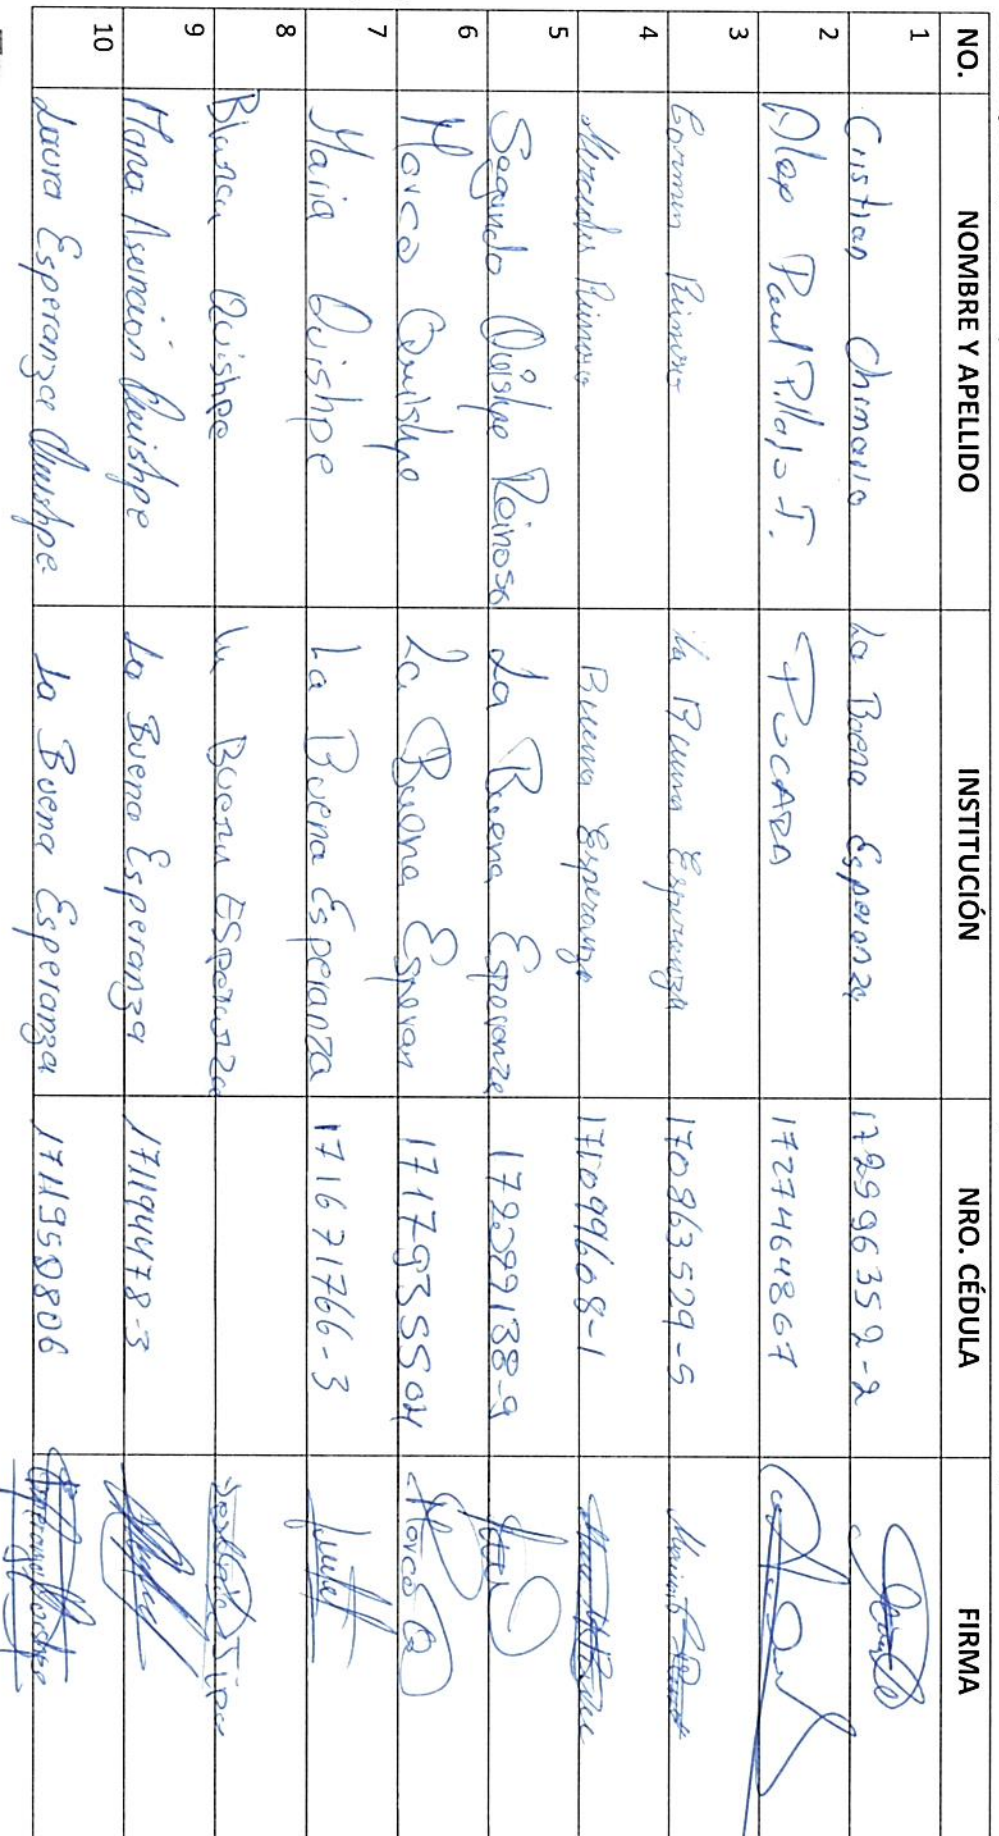 NO. NOMBRE Y APELLIDO INSTITUCIÓN NRO. CÉDULA FIRMA
1 Cristian Chimarro La Buena Esperanza 172996352-2
2 Alex Paul Pillajo T. PUCARA 1727464867
3 Carmen Reinoso La Buena Esperanza 170863529-5
4 Mercedes Reinoso Buena Esperanza 171099608-1
5 Segundo Quishpe Reinoso La Buena Esperanza
6 Marco Quishpe La Buena Esperan 1717935504 Marco Q
7 Maria Quishpe La Buena Esperanza 171671766-3
8 Blanca Quishpe La Buena ESperanza
9 Maria Asención Quishpe La Buena Esperanza 171194478-3
10 Laura Esperanza Quishpe La Buena Esperanza 1711958806